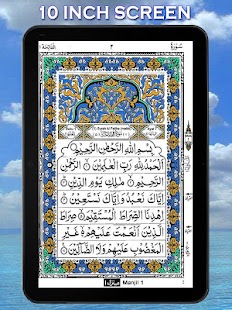 10 INCH SCREEN
بِسْمِ اللهِ الرَّحْمٰنِ الرَّحِيْمِ
اَلْحَمْدُ لِلّٰهِ رَبِّ الْعٰلَمِيْنَ الرَّحْمٰنِ
الرَّحِيْمِ مٰلِكِ يَوْمِ الدِّيْنِ
اِيَّاكَ نَعْبُدُ وَاِيَّاكَ نَسْتَعِيْنُ
اِهْدِنَا الصِّرَاطَ الْمُسْتَقِيْمَ صِرَاطَ
الَّذِيْنَ اَنْعَمْتَ عَلَيْهِمْ غَيْرِ
الْمَغْضُوْبِ عَلَيْهِمْ وَلَا الضَّآلِّيْنَ
Manjil 1